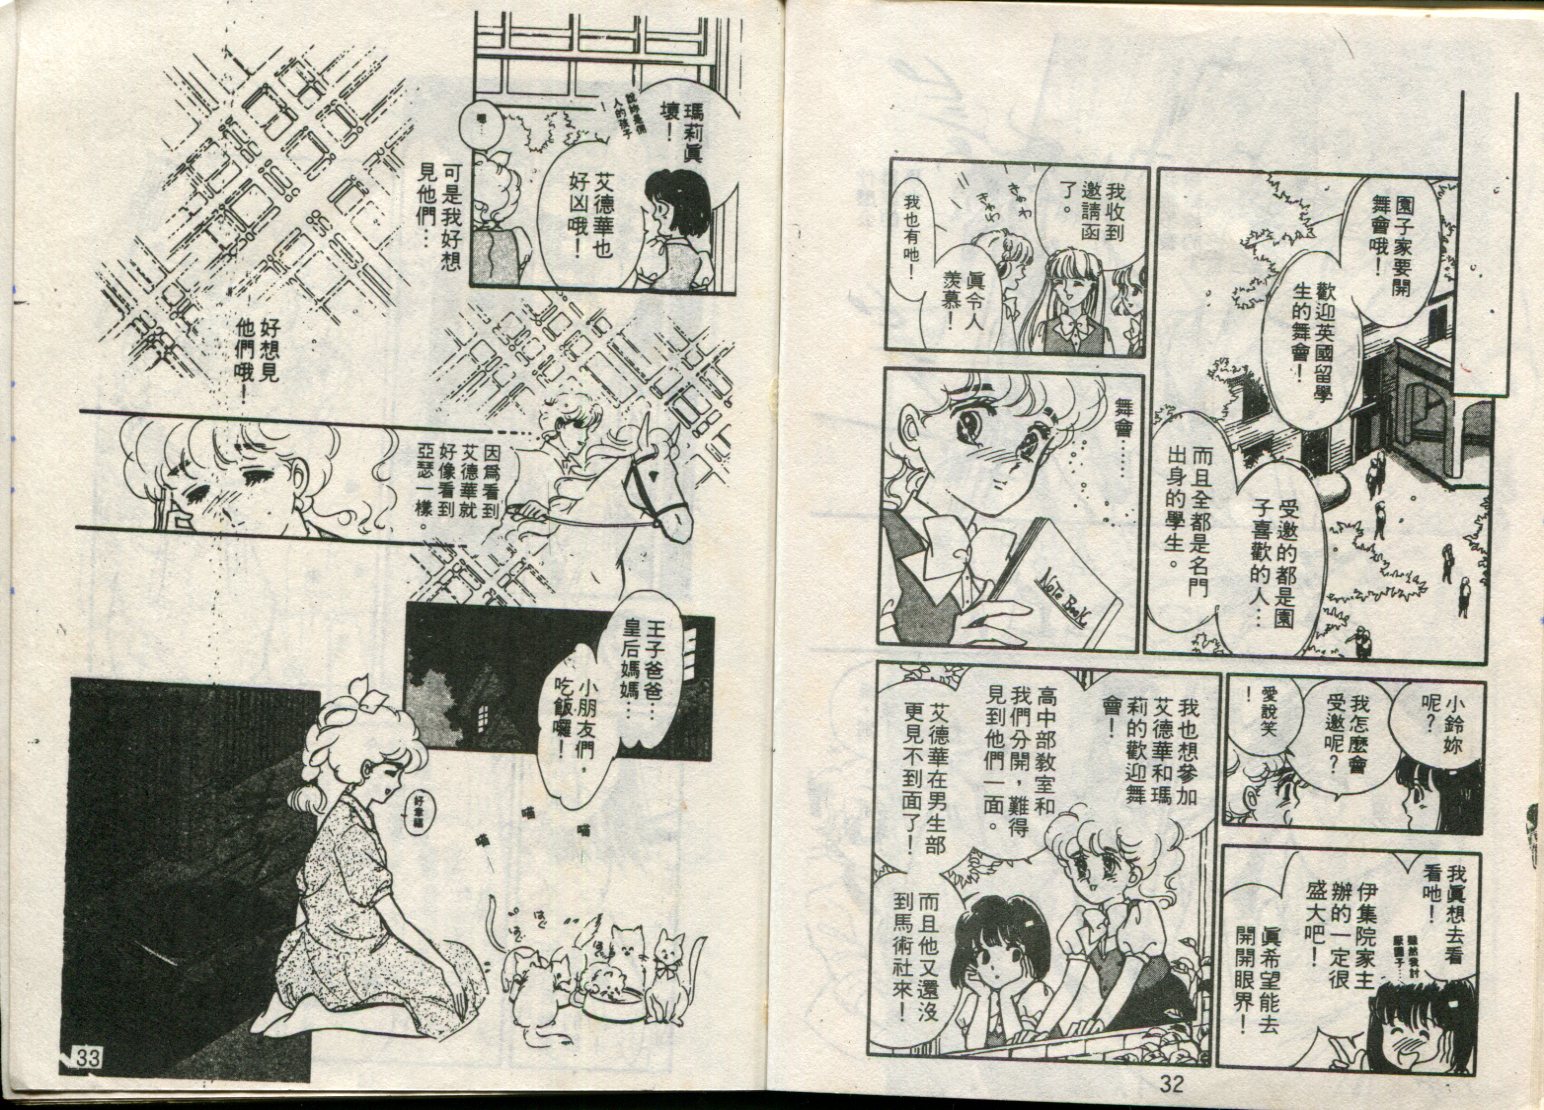 園子家要開
舞會哦！
歡迎英國留學
生的舞會！
受邀的都是園
子喜歡的人…
而且全都是名門
出身的學生。
我收到
邀請函
了。
きゃわ
きゃわ
真令人
羨慕！
我也有吔！
舞會……
Note Book
小鈴妳
呢？
我怎麼會
受邀呢？
愛說笑
！
我真想去看
看吔！
雖然我討
厭園子…
伊集院家主
辦的一定很
盛大吧！
真希望能去
開開眼界！
我也想參加
艾德華和瑪
莉的歡迎舞
會！
高中部教室和
我們分開，難得
見到他們一面。
艾德華在男生部
更見不到面了！
而且他又還沒
到馬術社來！
32
瑪莉真
壞！
說妳是個
人的孩子
！
艾德華也
好凶哦！
嗯…
可是我好想
見他們…
好想見
他們哦！
因為看到
艾德華就
好像看到
亞瑟一樣。
王子爸爸…
皇后媽媽…
小朋友們，
吃飯囉！
喵
喵
喵
33